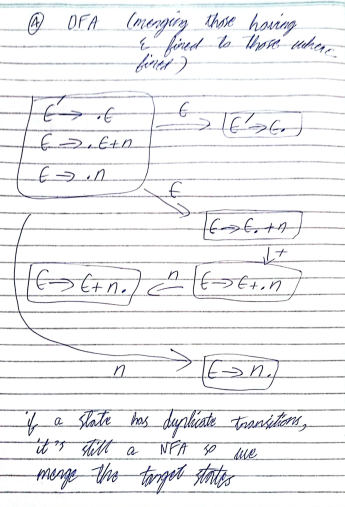 ④ DFA (merging those having
ε fined to those where
fined)
E' → .E
E → .E+n
E → .n
E
E' → E.
E
E → E. +n
+
E → E+n.
n
E → E+.n
n
E → n.
if a state has duplicate transitions,
it's still a NFA so we
merge the target states